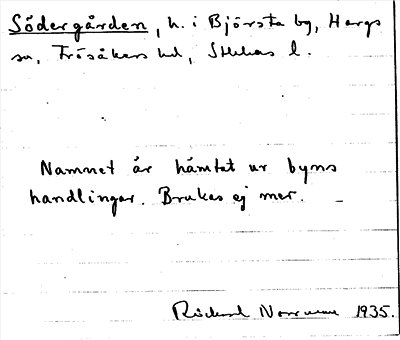 Södergården, h. i Björsta by, Hargs
sn, Frösåkers hd, Sthlms l.
Namnet är hämtat ur byns
handlingar. Brukas ej mer. –
Rickard 1935.